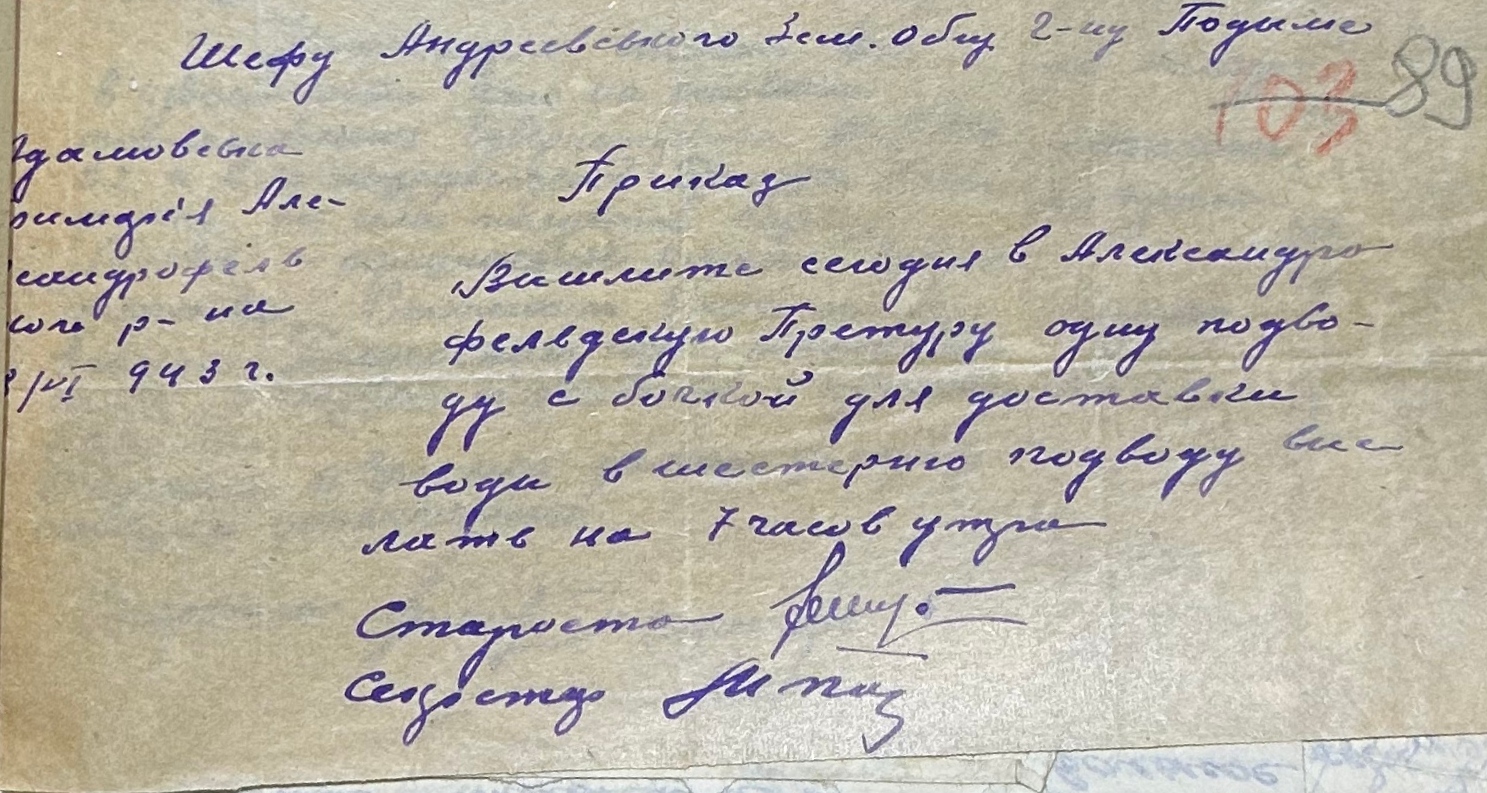 Шефу Андреевского Зем. Общ г-ну Подыме
103 89
Адамовська
римария Але-
ксандрофель
ского р-на
8/VI 943 г.
Приказ
Вишлите сегодня в Александро
фельдскую Претуру одну подво-
ду с бочкой для доставки
води в шестерню подводу вис
лать на 7 часов утра
Староста
Секретар